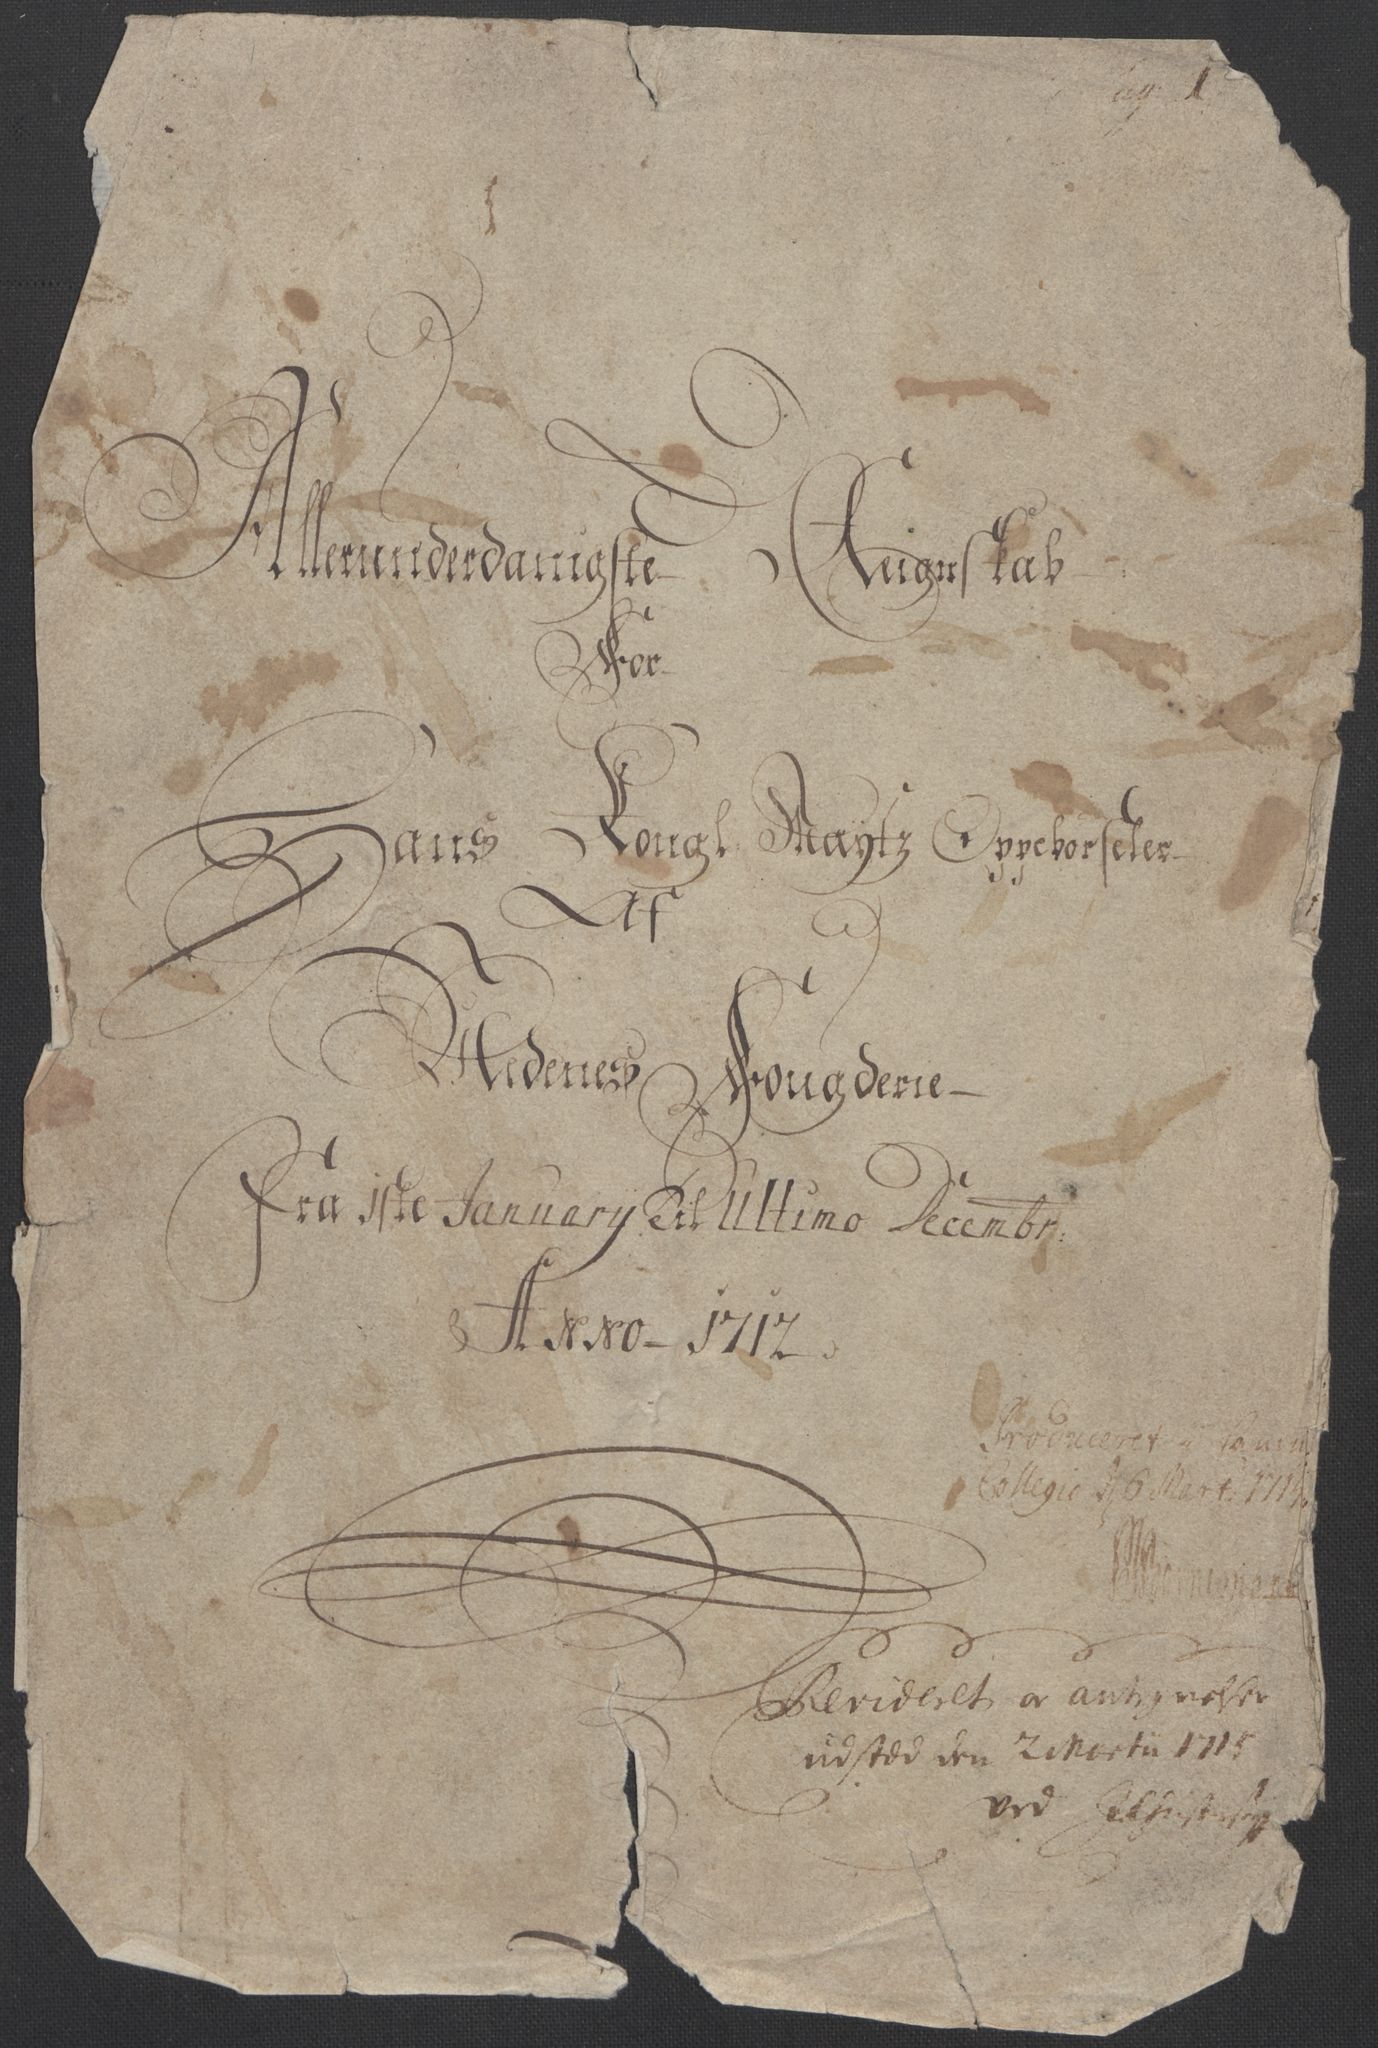 Allerunderdanigste Reignskab
For
Hans Kongl Mayts Oppeborseler
Af
Nedenes Fougderie
Fra 1ste January Til Ultimo Decembr:
Anno 1712
Produceret i
Collegio d 6 Marti 1715
Revideret or antegnelser
udstæd den 2 Martii 1715
ved